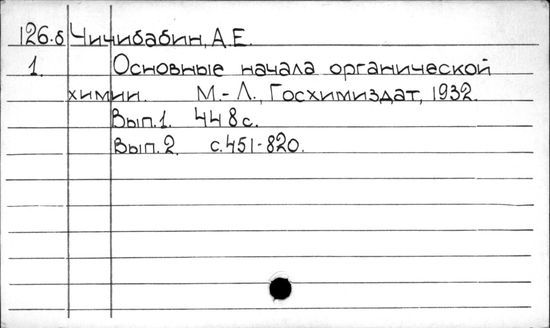 126.б Чичибабин, А.Е.
1. Основные начала органической
химии. М.-Л., Госхимиздат, 1932.
Вып.1. 448 с.
Вып.2. с.451-820.